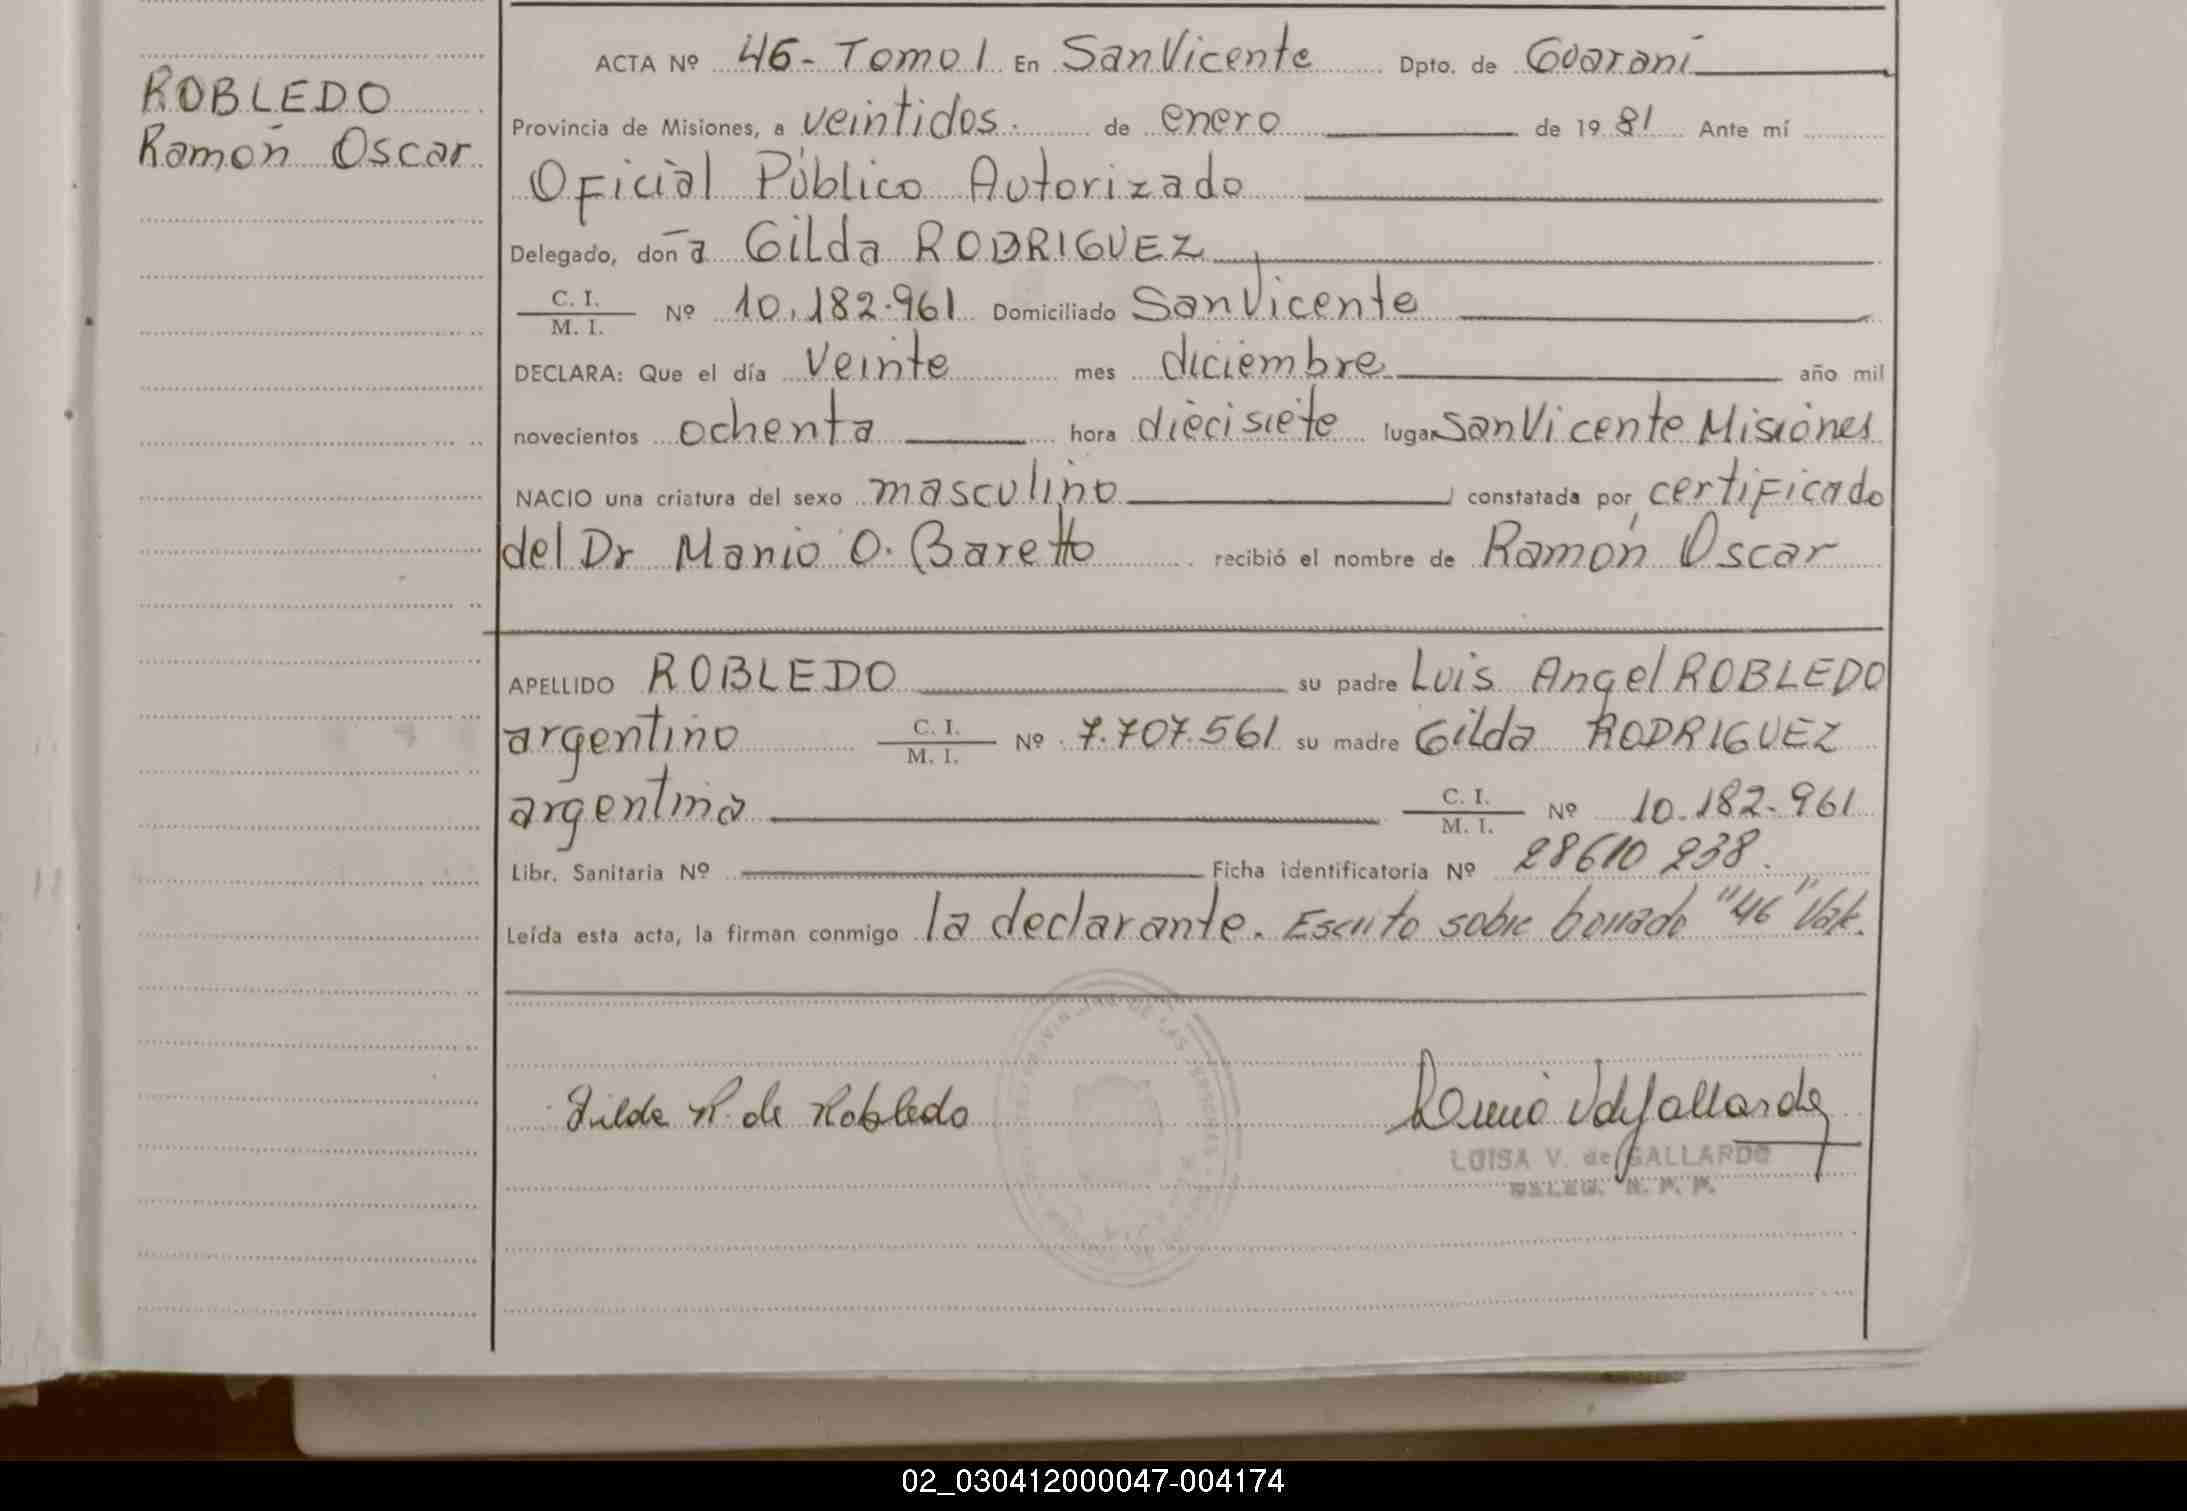 ROBLEDO
Ramón Oscar
ACTA Nº 46 - Tomo I En San Vicente Dpto. de Guaraní
Provincia de Misiones, a veintidos. de enero de 1981 Ante mí
Oficial Público Autorizado
Delegado, doña Gilda RODRIGUEZ
C. I. / M. I. Nº 10.182.961 Domiciliado San Vicente
DECLARA: Que el día Veinte mes diciembre año mil
novecientos ochenta hora diecisiete lugar San Vicente Misiones
NACIO una criatura del sexo masculino constatada por certificado
del Dr Manio O. Baretto recibió el nombre de Ramón Oscar
APELLIDO ROBLEDO su padre Luis Angel ROBLEDO
argentino C. I. / M. I. Nº 7.707.561 su madre Gilda RODRIGUEZ
argentina C. I. / M. I. Nº 10.182.961
Libr. Sanitaria Nº Ficha identificatoria Nº 28610238.
Leída esta acta, la firman conmigo la declarante. Escrito sobre borrado "46" Vale.
Gilda R. de Robledo
LUISA V. de GALLARDO
02_030412000047-004174